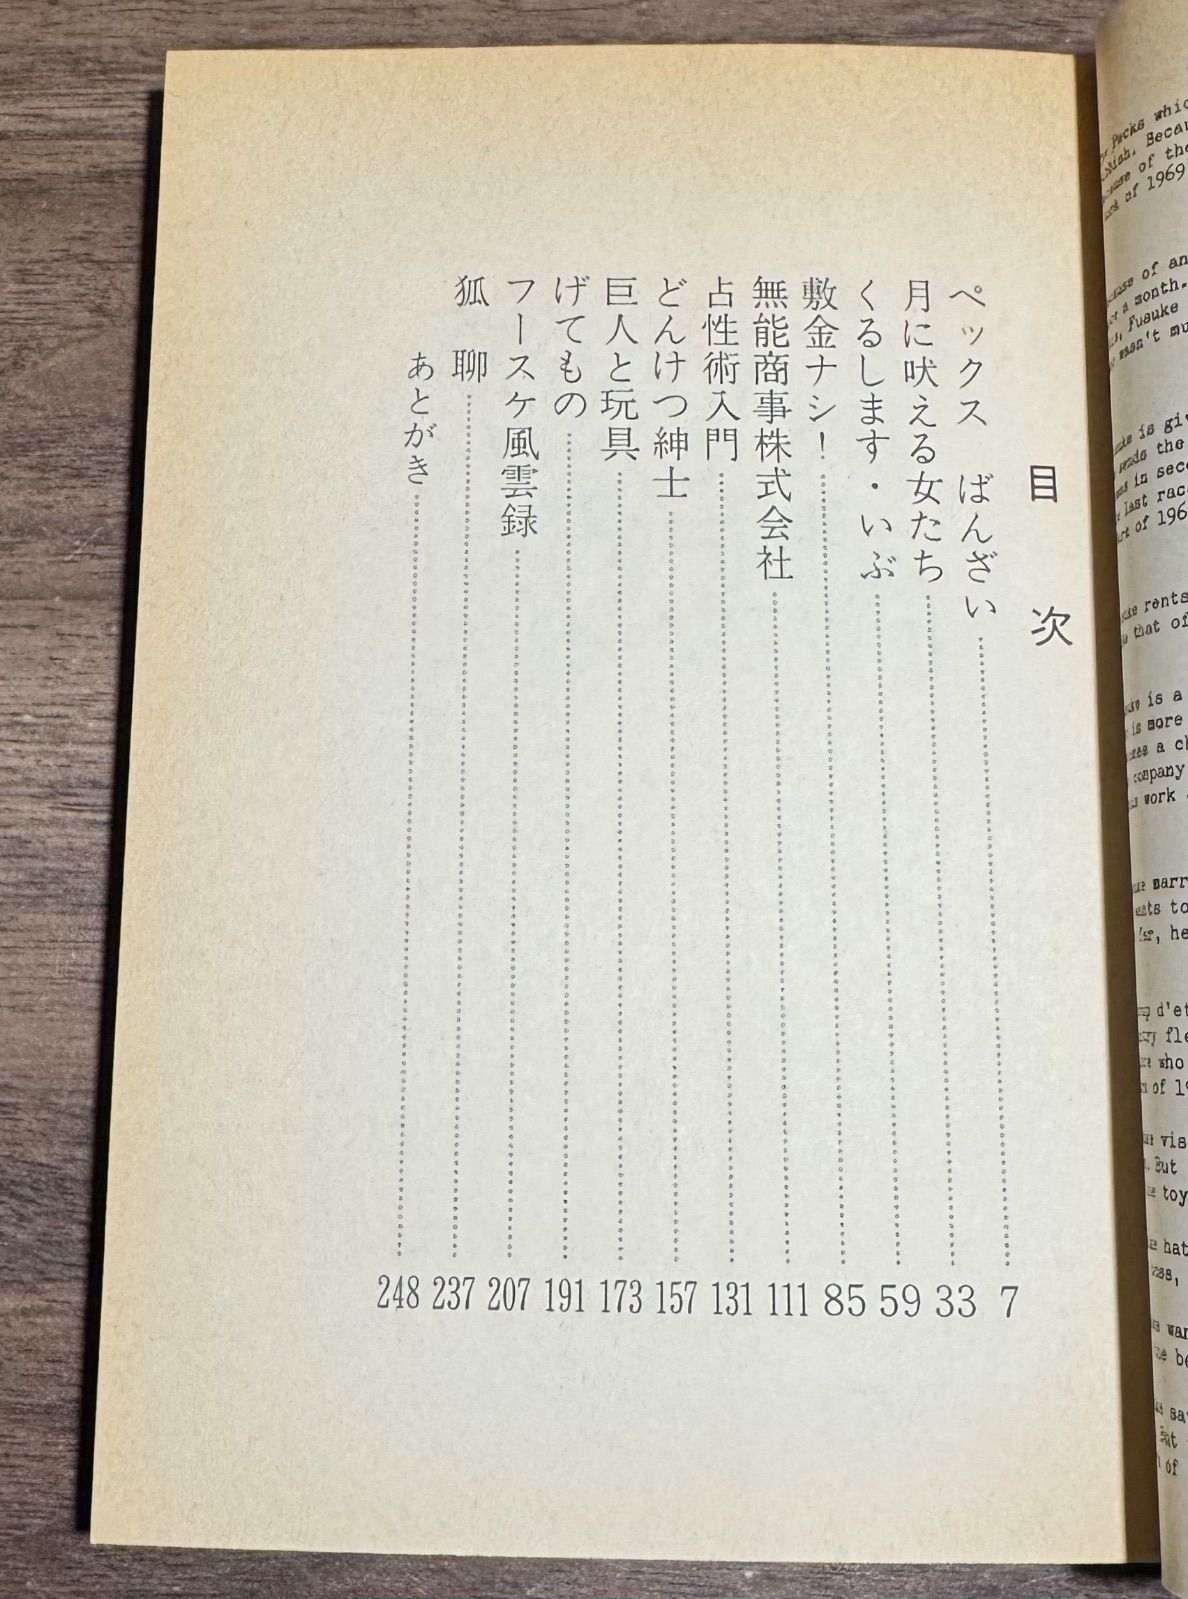 目次
ペックス ばんざい 7
月に吠える女たち 33
くるします・いぶ 59
敷金ナシ! 85
無能商事株式会社 111
占性術入門 131
どんけつ紳士 157
巨人と玩具 173
げてもの 191
フースケ風雲録 207
狐聊 237
あとがき 248
Pecks whic
Becau
of the
of 1969
of an
a month.
Fusuke
wasn't mu
is giv
the
in seco
last rac
of 196
rents
that of
is a
is more
a ch
company
work
marr
to
he
d'et
fle
who
of 19
vis
But
toy
hat
wan
be
say
of